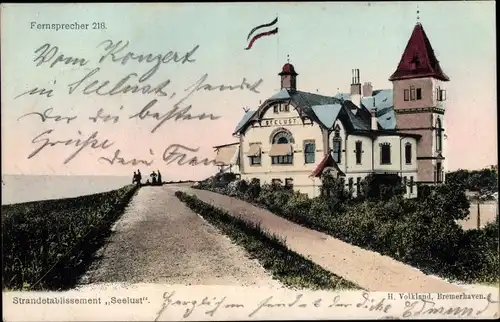 Fernsprecher 218.
Vom Konzert
in Seelust, sendet
Dir die besten
Grüße
Dein Franz
SEELUST
Strandetablissement „Seelust".
H. Volkland, Bremerhaven.
Herzliche Grüße